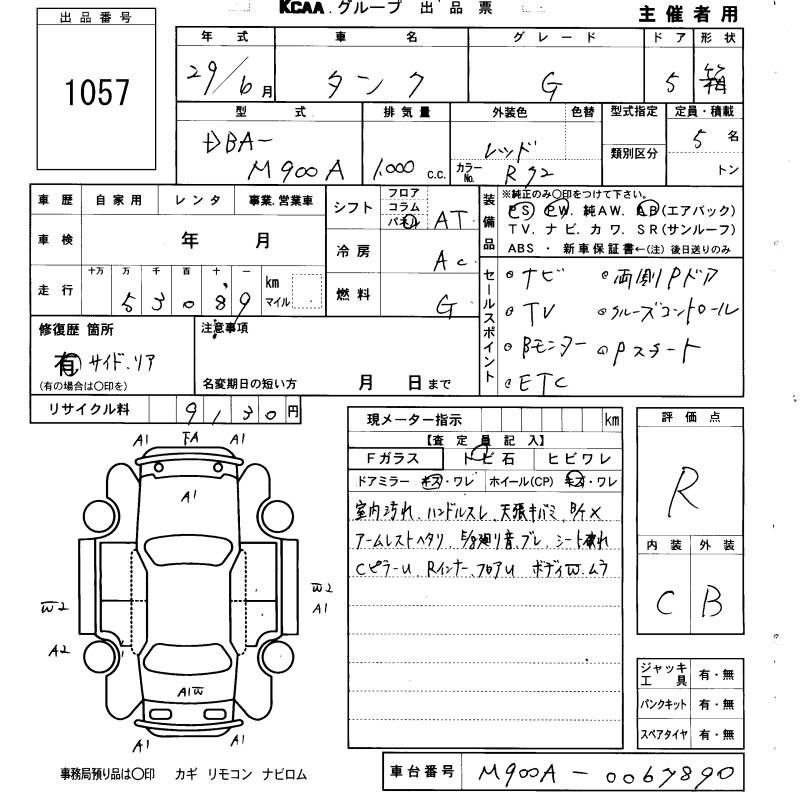 KCAA.グループ 出品票 主催者用
出品番号
1057
年式 車名 グレード ドア 形状
29/6月 タンク G 5 箱
型式 排気量 外装色 色替 型式指定 定員・積載
DBA-
M900A 1,000 c.c. レッド カラーNo. R72 類別区分 5名
トン
車歴 自家用 レンタ 事業.営業車
車検 年 月
走行 十万 万 千 百 十 一
5 3 0 8 9 km マイル
シフト フロア コラム パネル AT
冷房 Ac
燃料 G
装備品 ※純正のみ〇印をつけて下さい。
PS. PW. 純AW. AB(エアバック)
TV. ナビ. カワ. SR(サンルーフ)
ABS ・ 新車保証書←(注) 後日送りのみ
セールスポイント
ナビ 両側Pドア
TV クルーズコントロール
Bモニター Pスタート
ETC
修復歴 箇所
有 サイド.リア
(有の場合は〇印を)
注意事項
名変期日の短い方 月 日まで
リサイクル料 9 1 3 0 円
現メーター指示 km
【査定員記入】
Fガラス トビ石 ヒビワレ
ドアミラー キズ・ワレ ホイール(CP) キズ・ワレ
室内汚れ、ハンドルスレ、天張キバミ
アームレストヘタリ、 廻り音、ブレ、シート
CピラーU、Rインナー、フロアU ボディW.ムラ
評価点
R
内装 外装
C B
A1 FA A1
A1
W2
A2
W2
A1
A1W
A1 A1
ジャッキ工具 有・無
パンクキット 有・無
スペアタイヤ 有・無
事務局預り品は〇印 カギ リモコン ナビロム
車台番号 M900A-0067890